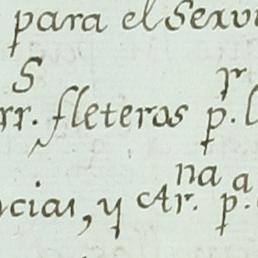 para el Serv
rrˢ. fleteros p.ʳ l
ncias, y Ar.ⁿᵃ p.ᵃ